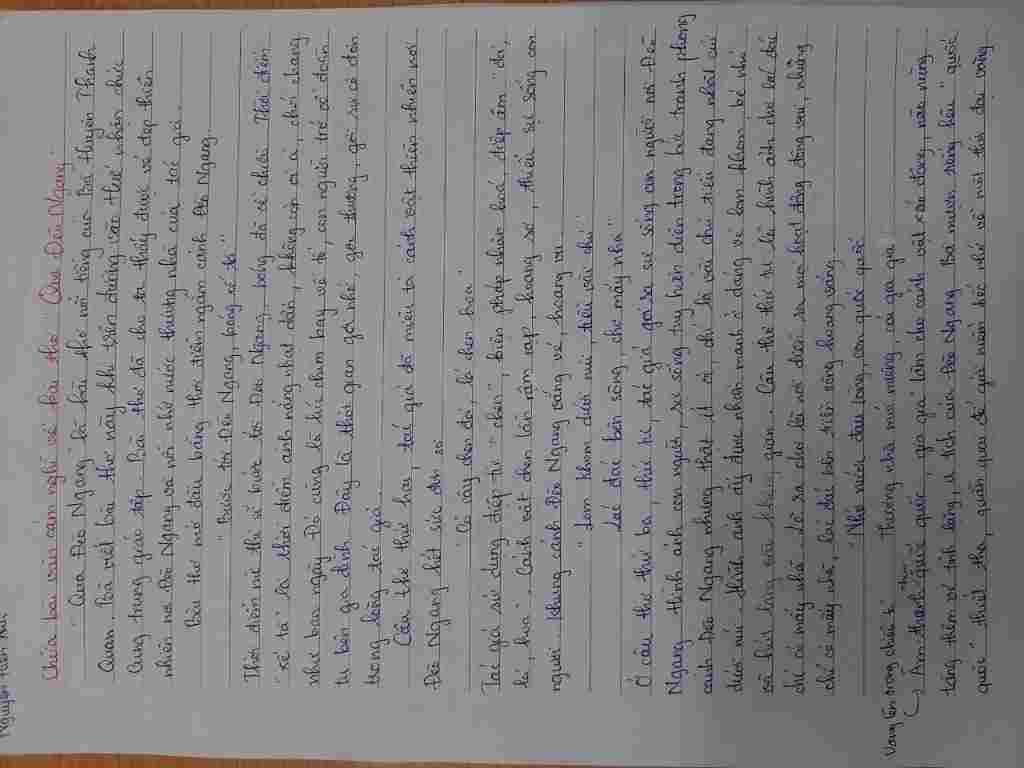 Nguyễn Toàn
Chữa bài văn cảm nghĩ về bài thơ "Qua Đèo Ngang"
"Qua Đèo Ngang" là bài thơ nổi tiếng của Bà Huyện Thanh
Quan. Bà viết bài thơ này khi trên đường vào Huế nhận chức
Cung trung giáo tập. Bài thơ đã cho ta thấy được vẻ đẹp thiên
nhiên nơi Đèo Ngang và nỗi nhớ nước thương nhà của tác giả.
Bài thơ mở đầu bằng thời điểm ngắm cảnh Đèo Ngang
"Bước tới Đèo Ngang, bóng xế tà"
Thời điểm nữ thi sĩ bước tới Đèo Ngang, bóng đã xế chiều. Thời điểm
"xế tà" là thời điểm ánh nắng nhạt dần, không còn oi ả, chói chang
như ban ngày. Đó cũng là lúc chim bay về tổ, con người trở về đoàn
tụ bên gia đình. Đây là thời gian gợi nhớ, gợi thương, gợi sự cô đơn
trong lòng tác giả.
Câu thơ thứ hai, tác giả đã miêu tả cảnh vật thiên nhiên nơi
Đèo Ngang hết sức đơn sơ
"Cỏ cây chen đá, lá chen hoa"
Tác giả sử dụng điệp từ "chen", biện pháp nhân hoá, điệp âm "đá,
lá, hoa". Cảnh vật chen lấn rậm rạp, hoang sơ, thiếu sự sống con
người. Khung cảnh Đèo Ngang vắng vẻ, hoang vu
"Lom khom dưới núi, tiều vài chú
Lác đác bên sông, chợ mấy nhà"
Ở câu thơ thứ ba, thứ tư, tác giả gợi ra sự sống con người nơi Đèo
Ngang. Hình ảnh con người, sự sống tuy hiện diện trong bức tranh phong
cảnh Đèo Ngang nhưng thật ít ỏi, chỉ là vài chú tiều đang nhặt củi
dưới núi. Hình ảnh ấy được nhấn mạnh ở dáng vẻ lom khom, bé nhỏ
và hút lòng giữa không gian. Câu thơ thứ tư là hình ảnh chợ lác đác
chỉ có mấy nhà. Lẽ ra chợ là nơi diễn ra mọi hoạt động đông vui, nhưng
chỉ có mấy nhà, lác đác bên triền sông hoang vắng.
"Nhớ nước đau lòng, con quốc quốc
Thương nhà mỏi miệng, cái gia gia"
Vang lên trong chiều tà
Âm thanh "quốc quốc, gia gia" làm cho cảnh vật xao động, não nùng
tăng thêm vẻ tĩnh lặng, u tịch của Đèo Ngang. Bà mượn tiếng kêu "quốc
quốc" thiết tha, quấn quại để giãi niềm tiếc nhớ về một thời đại vàng